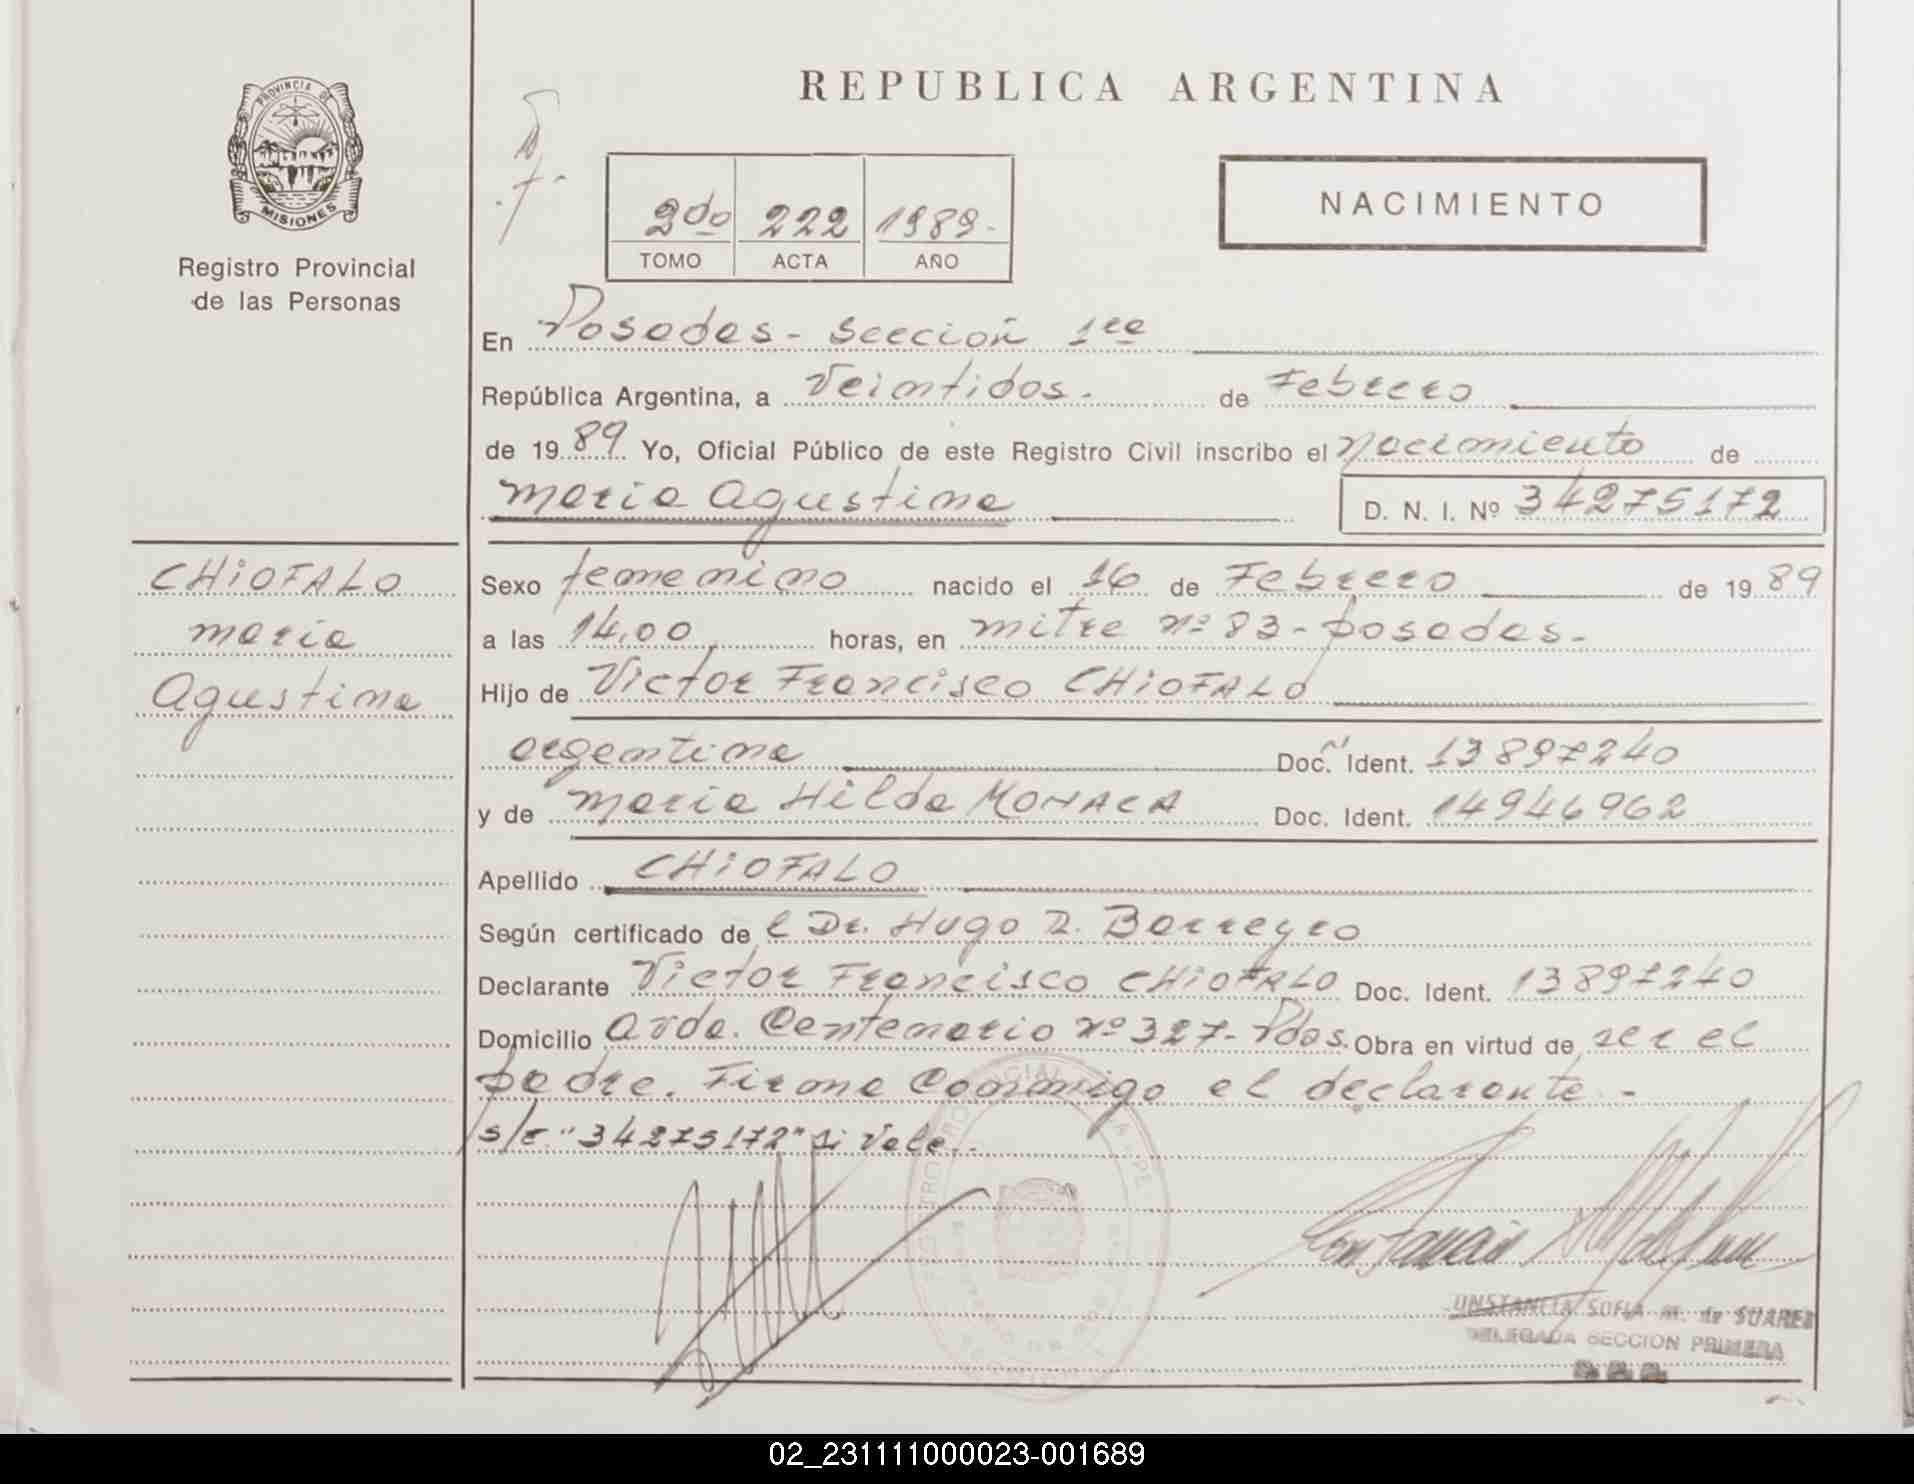 PROVINCIA DE
MISIONES
Registro Provincial
de las Personas
CHiOFALO
maria
Agustina
REPUBLICA ARGENTINA
NACIMIENTO
2do 222 1989-
TOMO ACTA AÑO
En Posadas - Sección 1ra
República Argentina, a Veintidos. de Febrero
de 19 89 Yo, Oficial Público de este Registro Civil inscribo el nacimiento de
maria agustina D. N. I. Nº 34275172
Sexo femenino nacido el 16 de Febrero de 19 89
a las 14,00 horas, en mitre nº 83 - posadas.
Hijo de Victor Francisco CHiOFALO
argentina Doc. Ident. 13897240
y de maria Hilda MONACA Doc. Ident. 14946962
Apellido CHiOFALO
Según certificado de l Dr. Hugo R. Barreyro
Declarante Victor Francisco CHiOFALO Doc. Ident. 13897240
Domicilio avda. Centenario nº 327- Pdas. Obra en virtud de ser el
padre. Firma Conmigo el declarante -
s/r. "34275172" Si Vale..
ONSTANCIA SOFIA M. de SUAREZ
DELEGADA SECCION PRIMERA
02_231111000023-001689